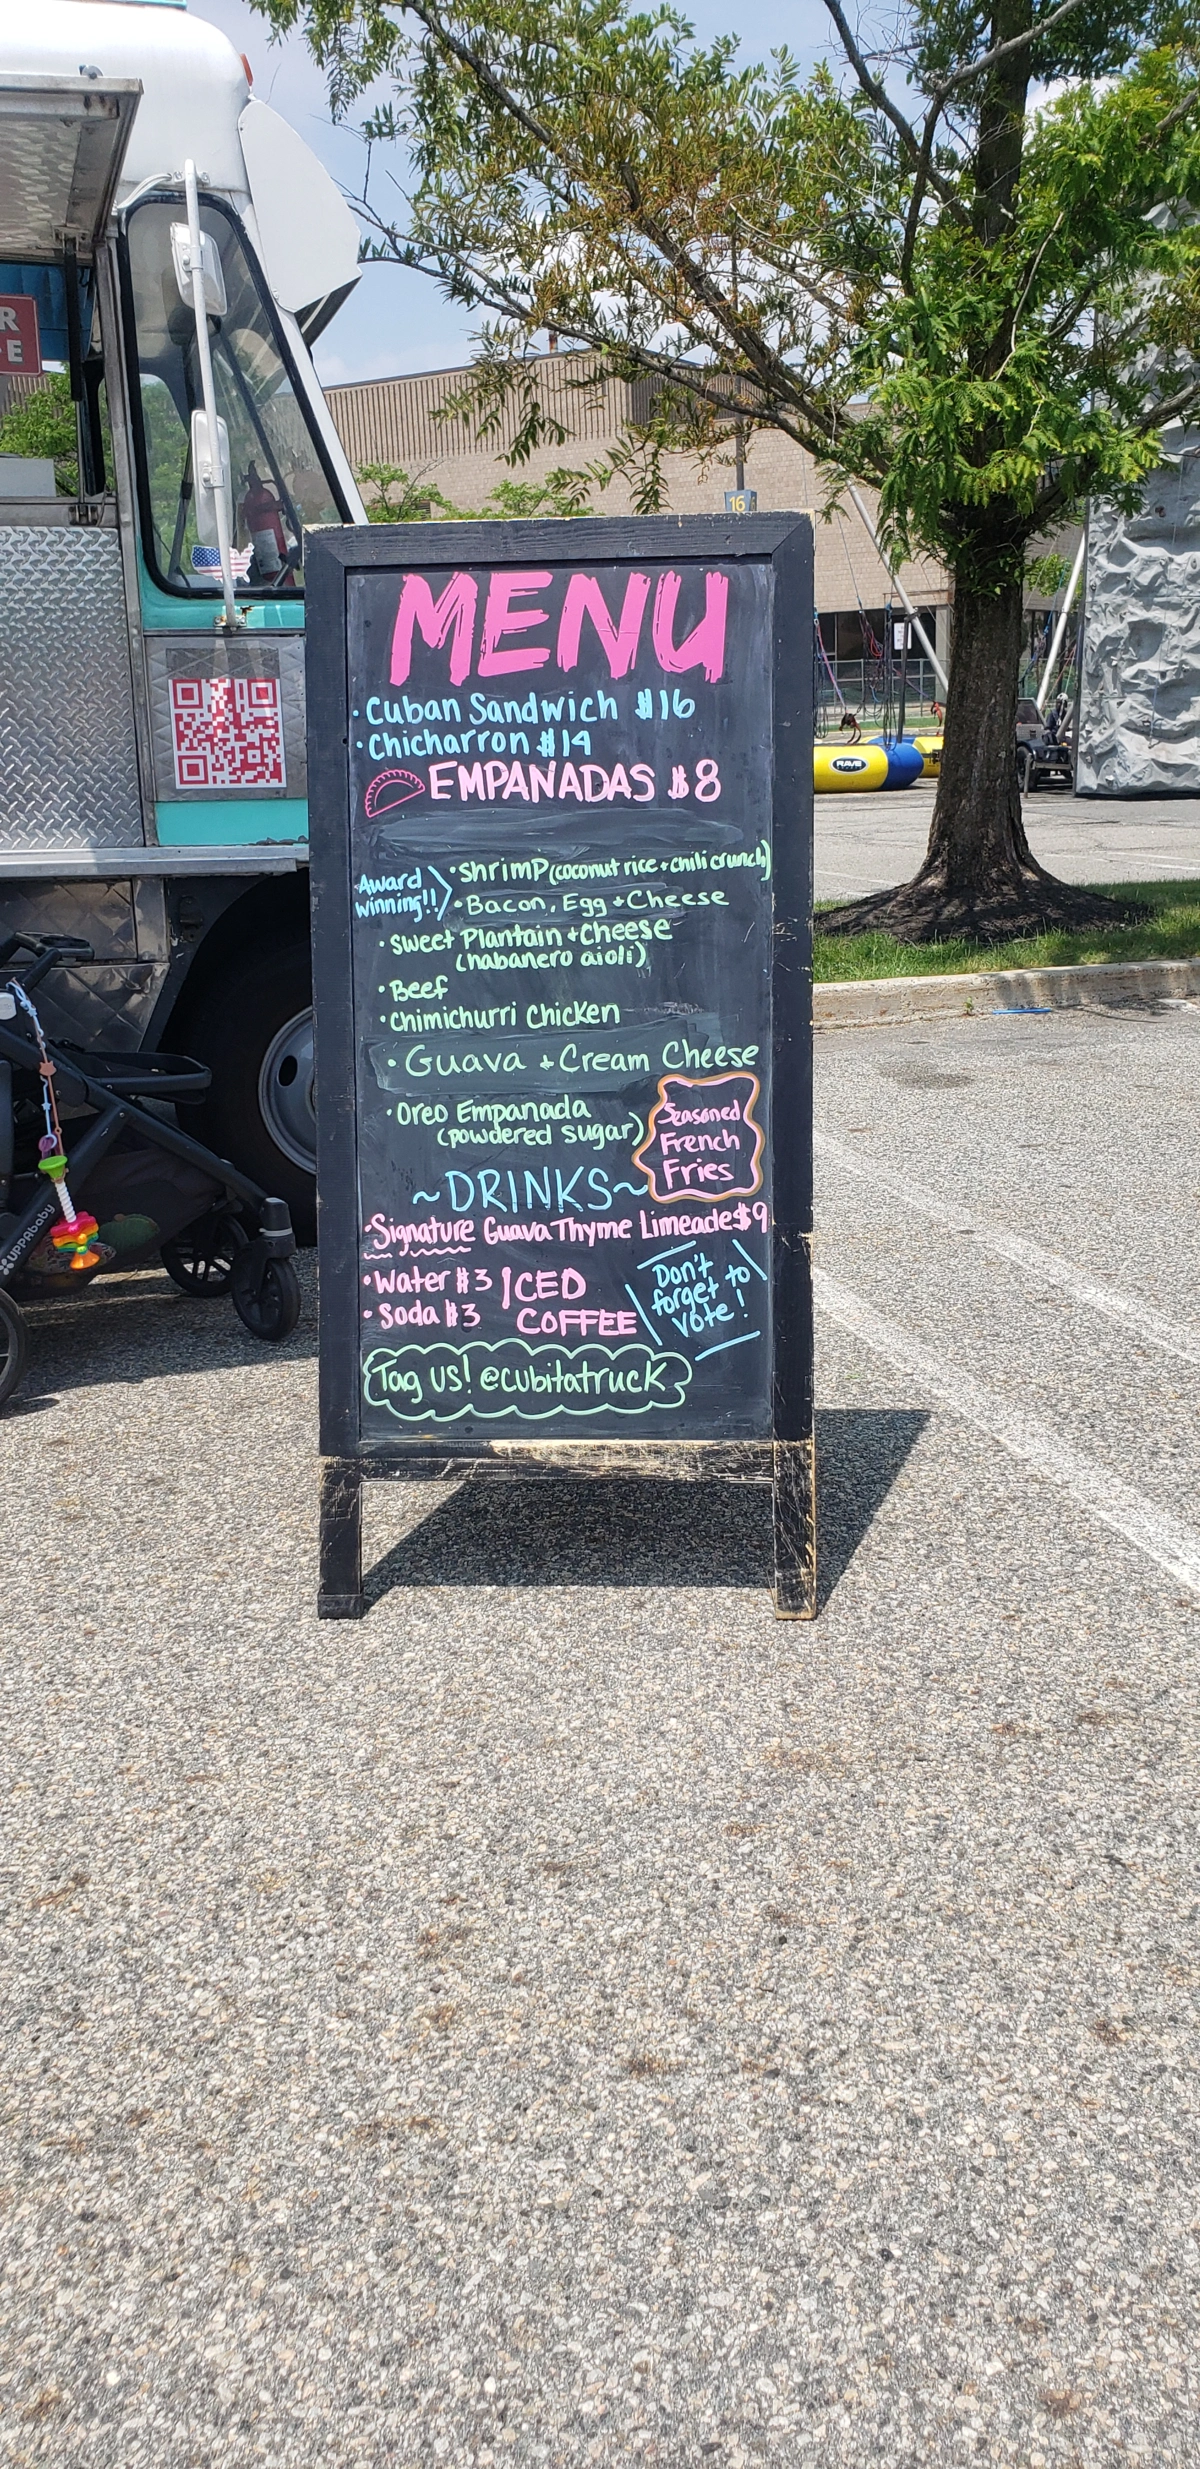 R
E
16
RAVE
MENU
· Cuban Sandwich $16
· Chicharron $14
EMPANADAS $8
Award winning!!
· Shrimp (coconut rice + chili crunch)
· Bacon, Egg + Cheese
· Sweet Plantain + Cheese
(habanero aioli)
· Beef
· Chimichurri Chicken
· Guava + Cream Cheese
· Oreo Empanada
(powdered sugar)
Seasoned
French
Fries
~DRINKS~
· Signature Guava Thyme Limeade $9
· Water $3
· Soda $3
ICED
COFFEE
Don't
forget to
vote!
Tag us! @cubitatruck
UPPAbaby